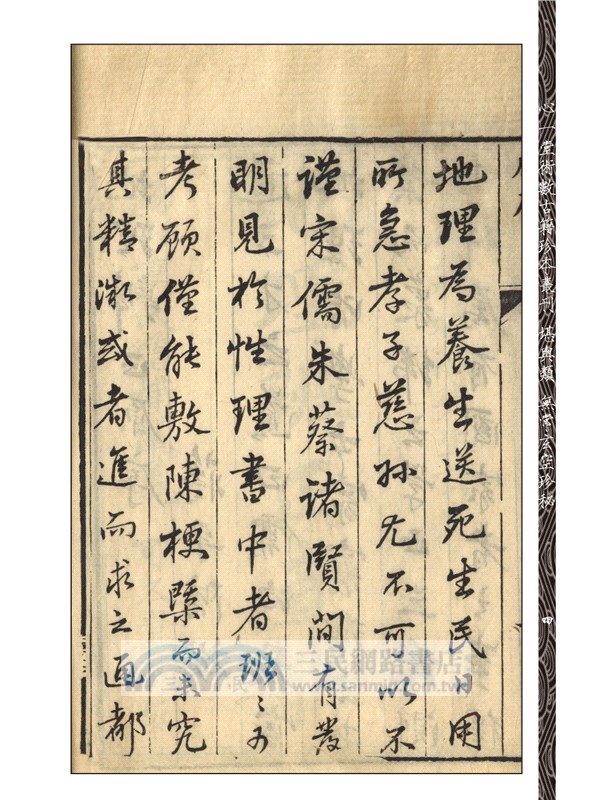 地理為養生送死生民日用
所急孝子慈孫尤不可以不
謹宋儒朱蔡諸賢間有發
明見於性理書中者班〻可
考顧僅能敷陳梗槩而未究
其精微或者進而求之通都
心一堂術數古籍珍本叢刊 堪輿類 無常玄空珍秘
四
三民網路書店
www.sanmin.com.tw